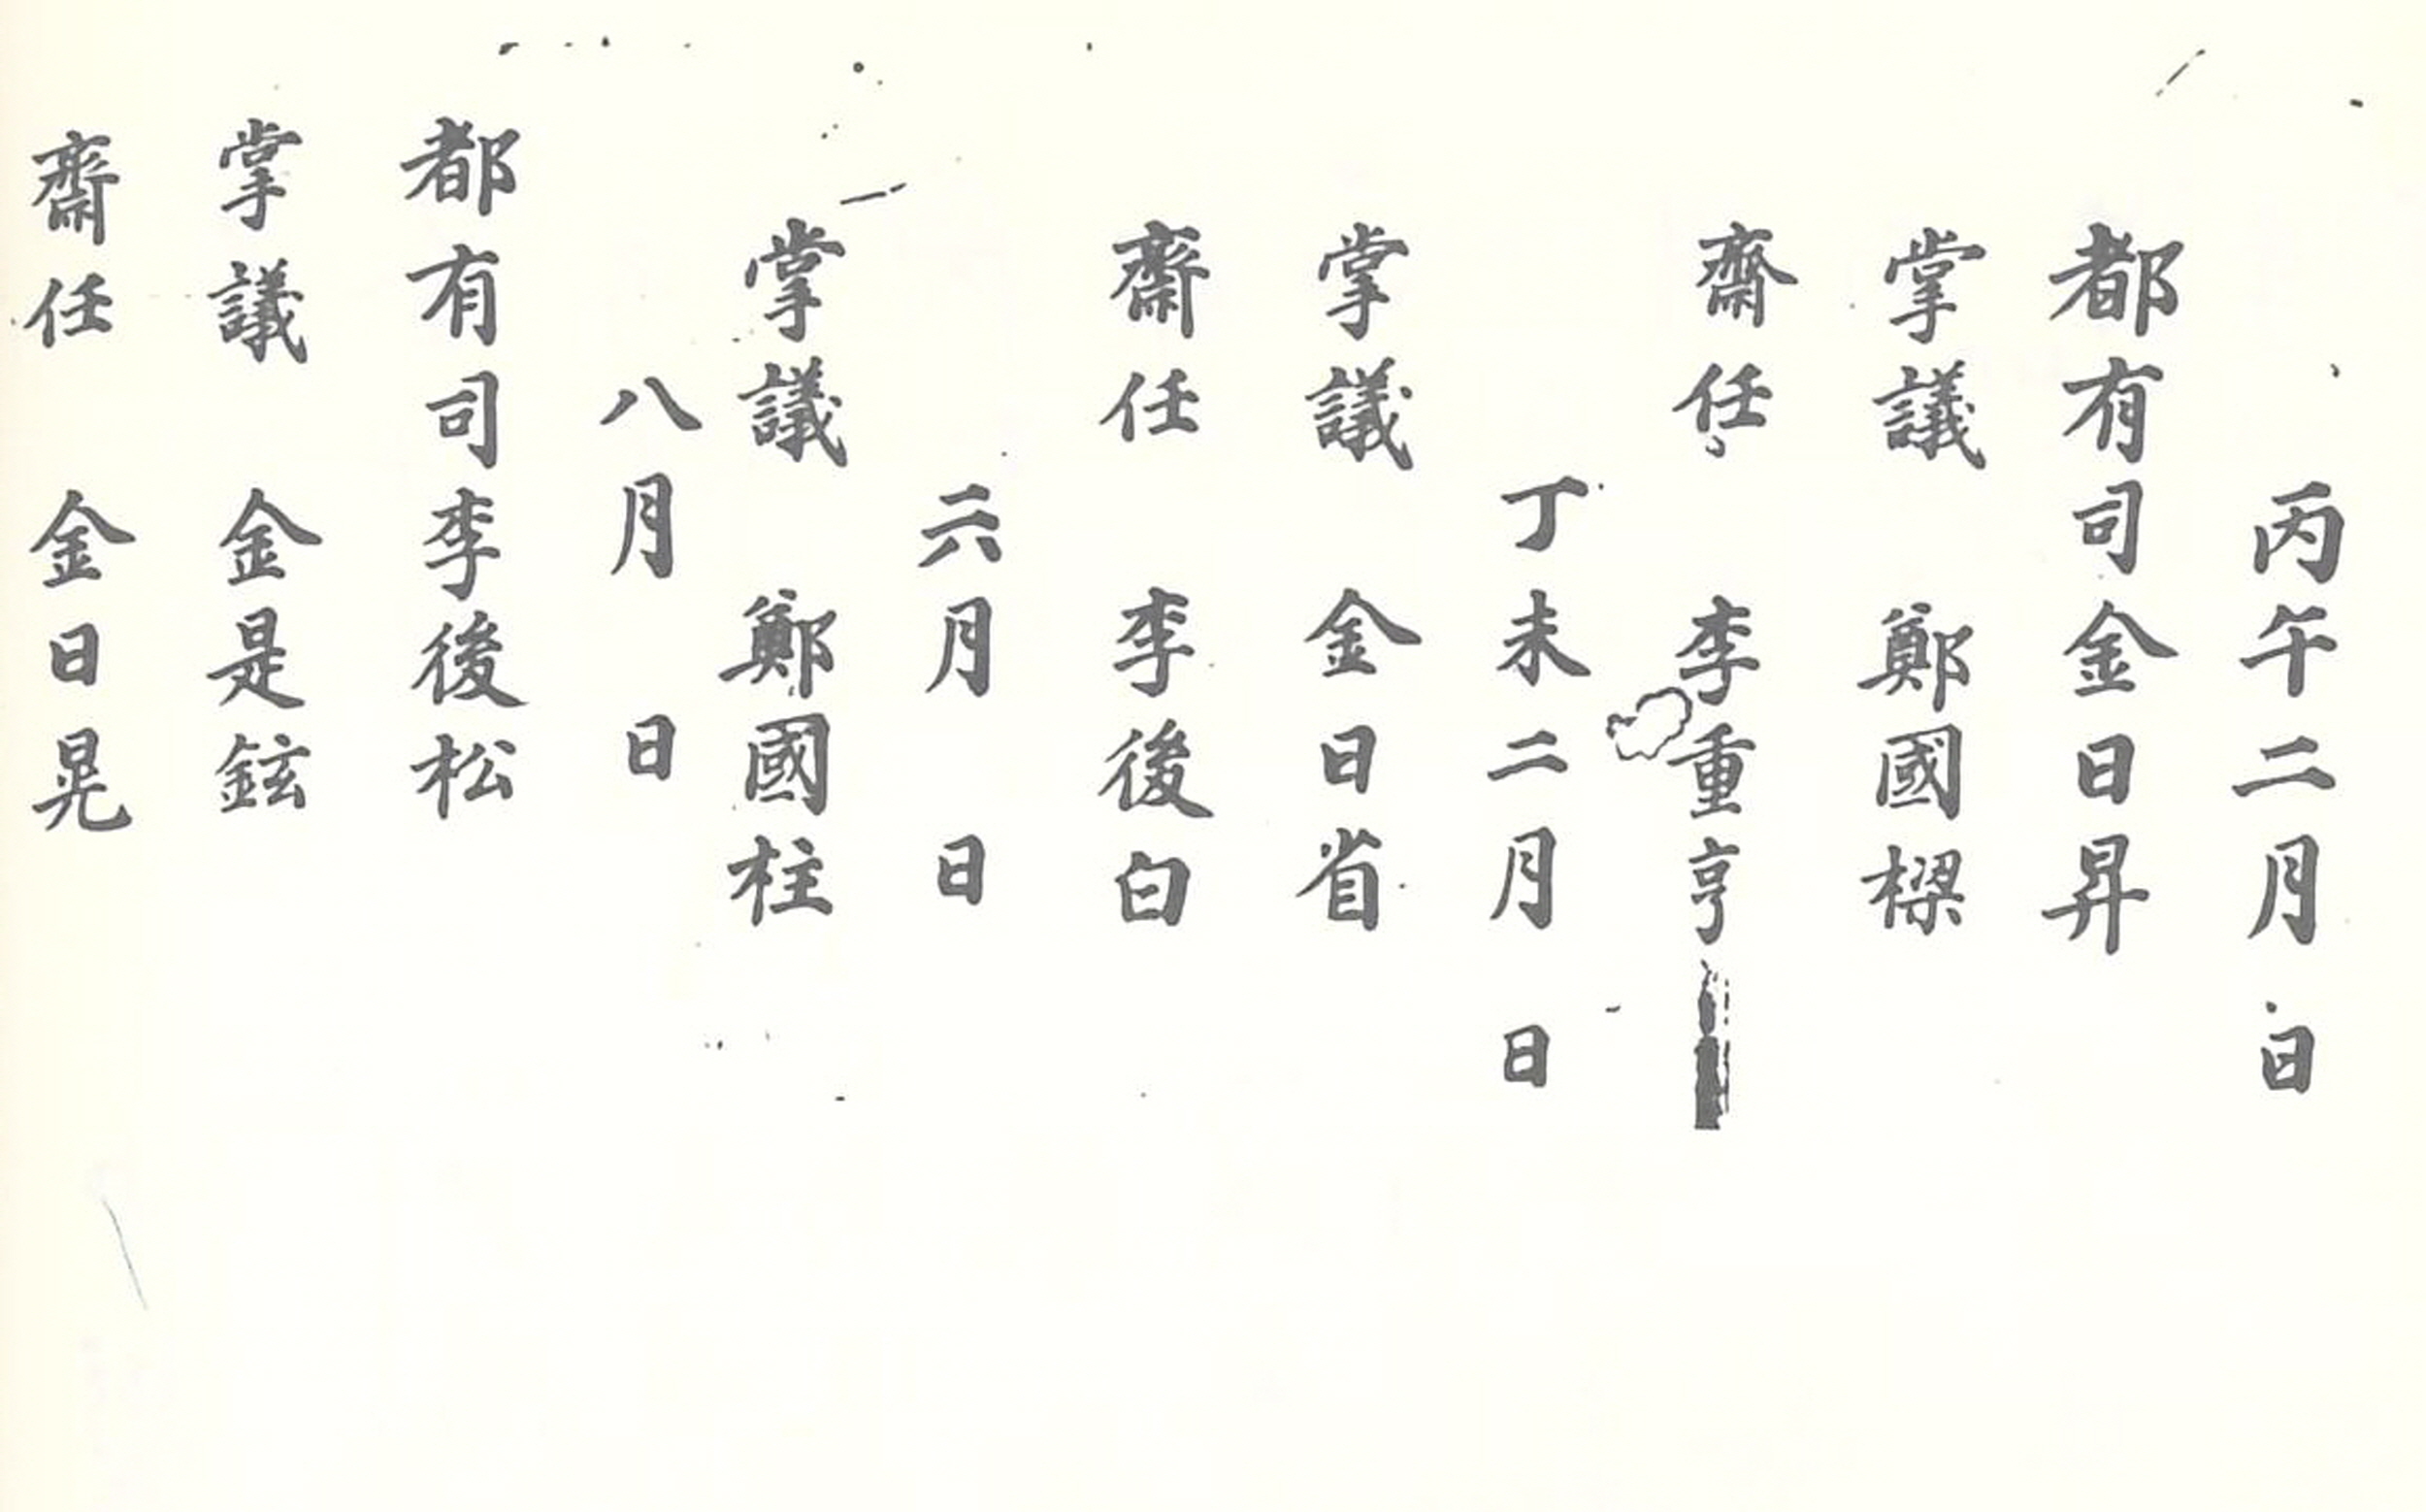 丙午二月 日
都有司金日昇
掌議 鄭國樑
齋任 李重亨
丁未二月 日
掌議 金日省
齋任 李後白
六月 日
掌議 鄭國柱
八月 日
都有司李後松
掌議 金是鉉
齋任 金日晃